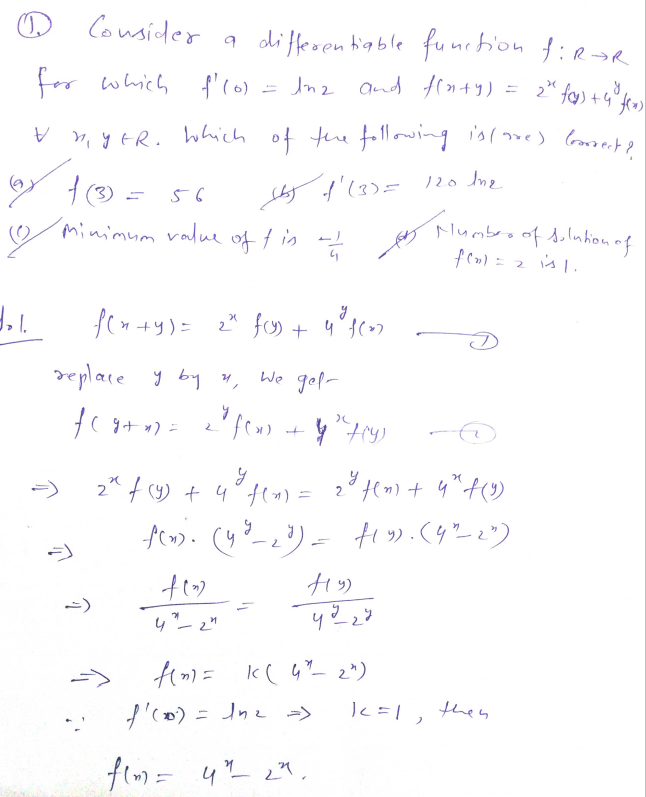 ① Consider a differentiable function f: R→R
for which f'(0) = ln2 and f(x+y) = 2^x f(y) + 4^y f(x)
∀ x, y ∈ R. Which of the following is(are) correct?
(a) f(3) = 56 (b) f'(3) = 120 ln2
(c) Minimum value of f is -1/4 (d) Number of solution of
f(x) = 2 is 1.
Sol. f(x+y) = 2^x f(y) + 4^y f(x) — ①
replace y by x, we get-
f(y+x) = 2^y f(x) + 4^x f(y) — ②
⇒ 2^x f(y) + 4^y f(x) = 2^y f(x) + 4^x f(y)
⇒ f(x). (4^y - 2^y) = f(y). (4^x - 2^x)
⇒ f(x)/(4^x - 2^x) = f(y)/(4^y - 2^y)
⇒ f(x) = K(4^x - 2^x)
∵ f'(0) = ln2 ⇒ K=1, then
f(x) = 4^x - 2^x.